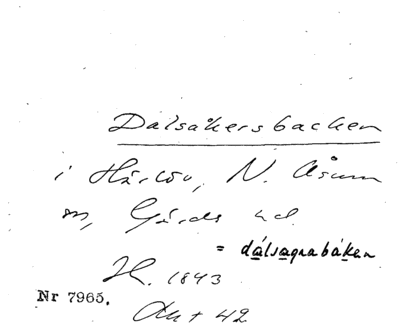 Dalsåkersbacken
i Härlöv, N. Åsum
sn, Gärds hd.
= dálsagnabáken
H. 1843
Nr 7965.
42